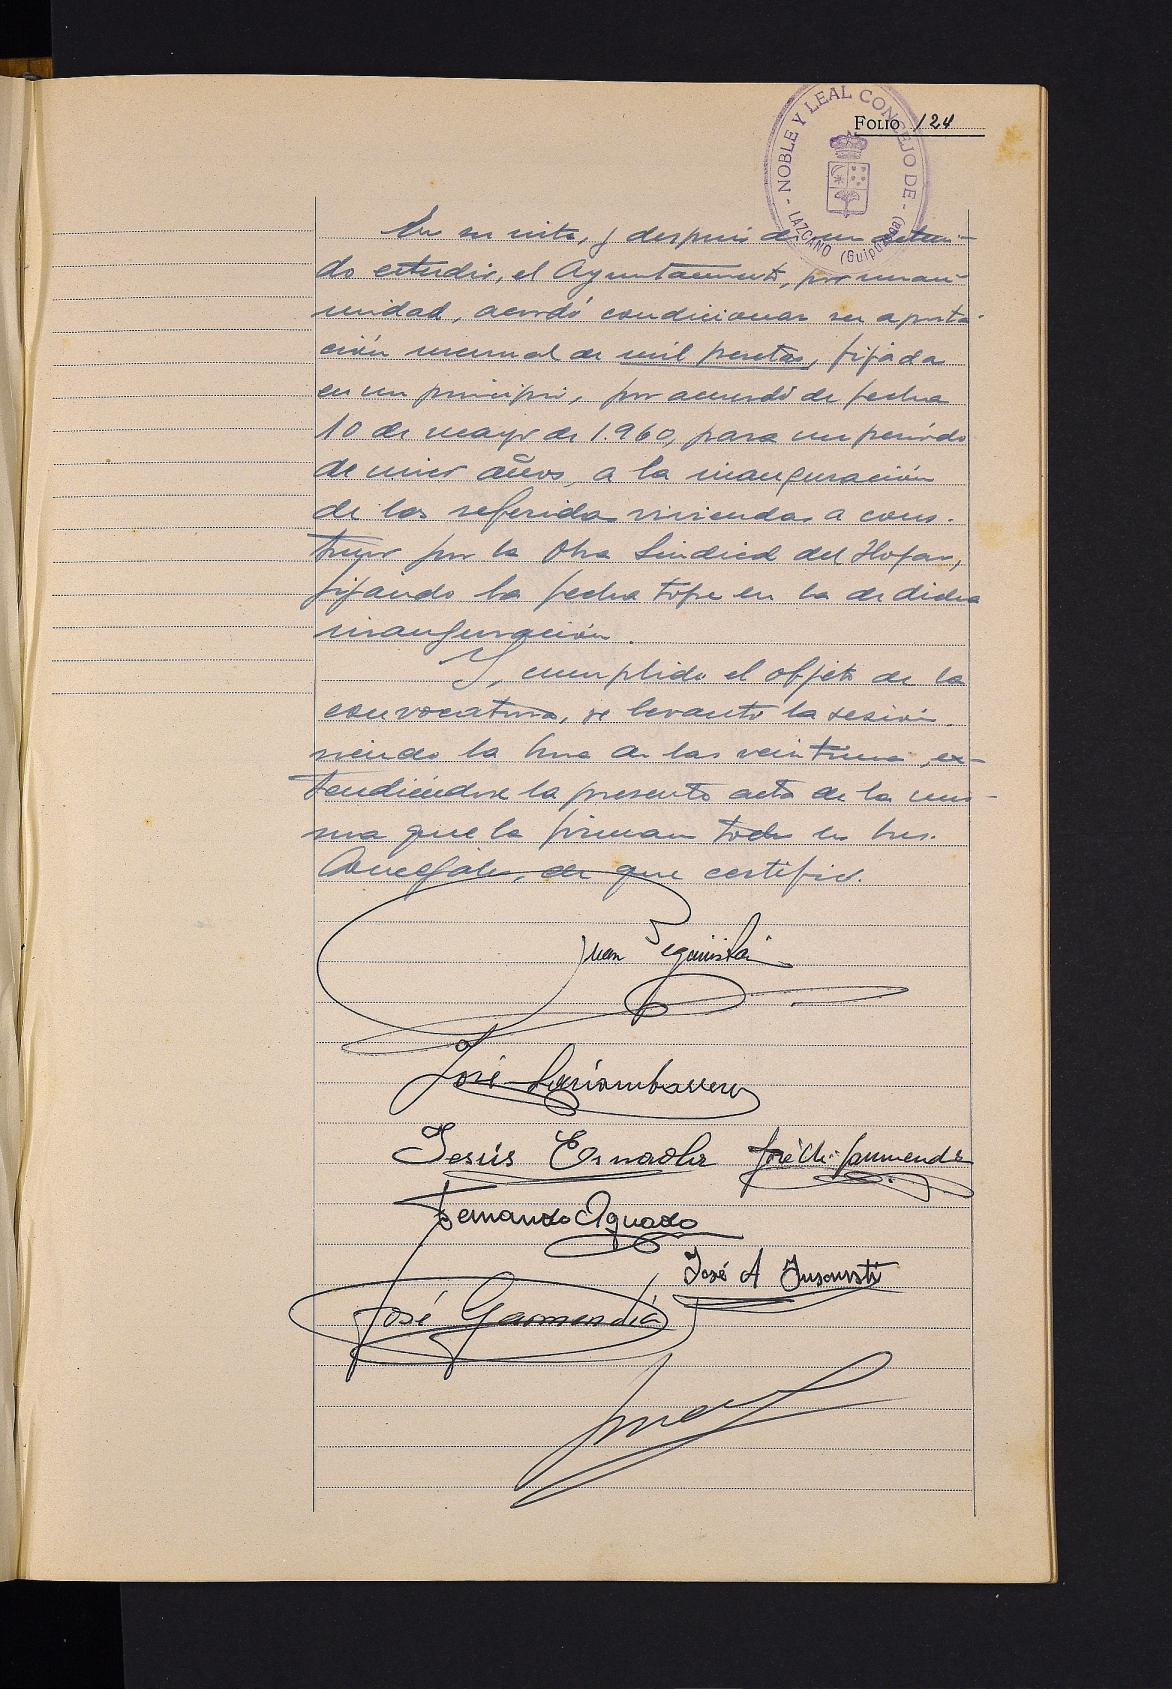 NOBLE Y LEAL CONCEJO DE
LAZCANO (Guipúzcoa)
FOLIO 124
En su vista, y después de un deteni-
do estudio, el Ayuntamiento, por unani-
midad, acordó condicionar su aporta-
ción mensual de mil pesetas, fijada
en un principio, por acuerdo de fecha
10 de mayo de 1.960, para un período
de años, a la inauguración
de las referidas viviendas a cons-
truir por la Obra Sindical del Hogar,
fijando la fecha tope en la de dicha
inauguración.
Y, cumplido el objeto de la
convocatoria, se levantó la sesión
siendo la hora de las veintiuna, ex-
tendiéndose la presente acta de la mis-
ma que la firman todos los Sres.
Concejales, de que certifico.
Juan
José
Jesús José Mª Garmendia
Fernando Aguado
José A
José Garmendia